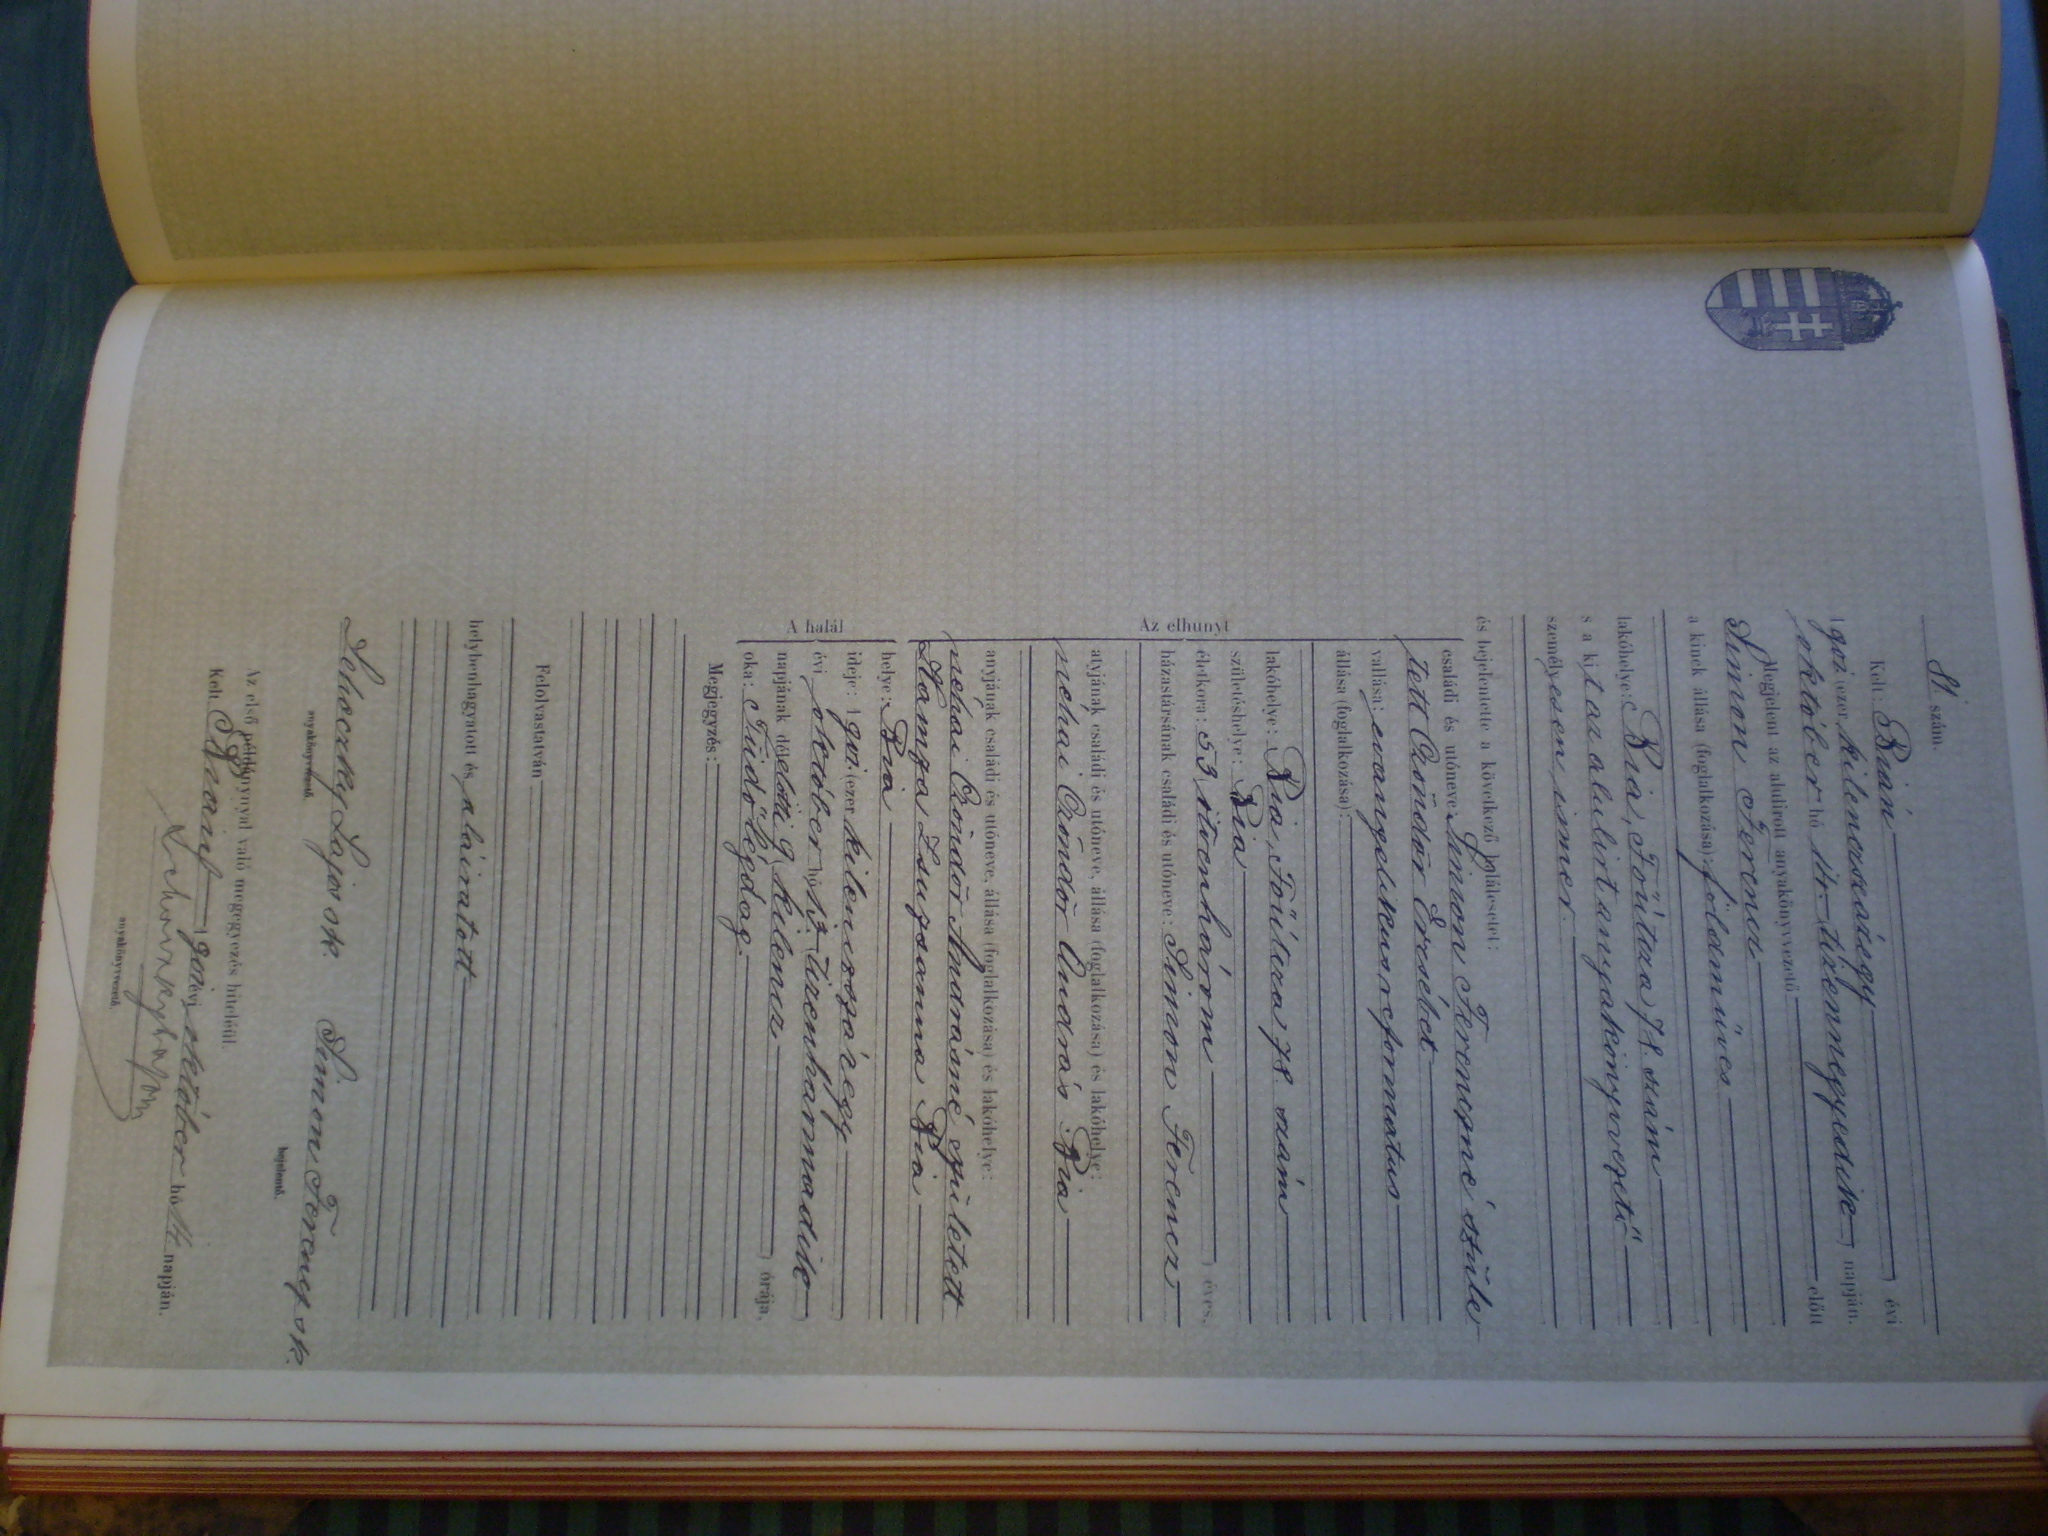 81. szám.
Kelt: Bián évi
1901 (ezer kilenczszázegy
október hó 14. tizennegyedike) napján.
Megjelent az alulirott anyakönyvvezető előtt
Simon Ferencz
a kinek állása (foglalkozása): földmüves
lakóhelye: Bia, Főútcza 78. szám
s a kit az alulirt anyakönyvvezető
személyesen ismer.
és bejelentette a következő halálesetet:
Az elhunyt
családi és utóneve: Simon Ferenczné szüle-
tett Czöndör Erzsébet
vallása: evangelikus reformatus
állása (foglalkozása):
lakóhelye: Bia, Főútcza 78. szám
születéshelye: Bia
életkora: 53 ötvenhárom) éves.
házastársának családi és utóneve: Simon Ferencz
atyjának családi és utóneve, állása (foglalkozása) és lakóhelye:
néhai Czöndör András Bia
anyjának családi és utóneve, állása (foglalkozása) és lakóhelye:
néhai Czöndör Andrásné született
Zsuzsanna Bia
A halál
helye: Bia
ideje: 1901 (ezer kilenczszázegy)
évi október hó 13. tizenharmadik)
napjának délelőtti 9 kilencz) órája.
oka: Tüdőlégdag.
Megjegyzés:
Felolvastatván
helybenhagyatott és aláiratott
Lajos sk. Simon Ferencz sk.
anyakönyvvezető. bejelentő.
Az első példánynyal való megegyezés hiteléül.
Kelt. Bián 1901 évi október hó 14 napján.
Lajos
anyakönyvvezető.